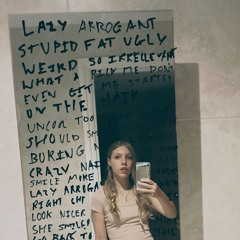 LAZY ARROGANT
STUPID FAT UGLY
WEIRD SO IRRELEVANT
WHAT A PICK ME DON'T
EVEN GET ME STARTED
ON THE
UNCOR TOO
SHOULD
BORING
CRAZY
SMILE MORE
LAZY ARROGA
RIGHT
LOOK NICER
SHE SMILED
GO BACK TO